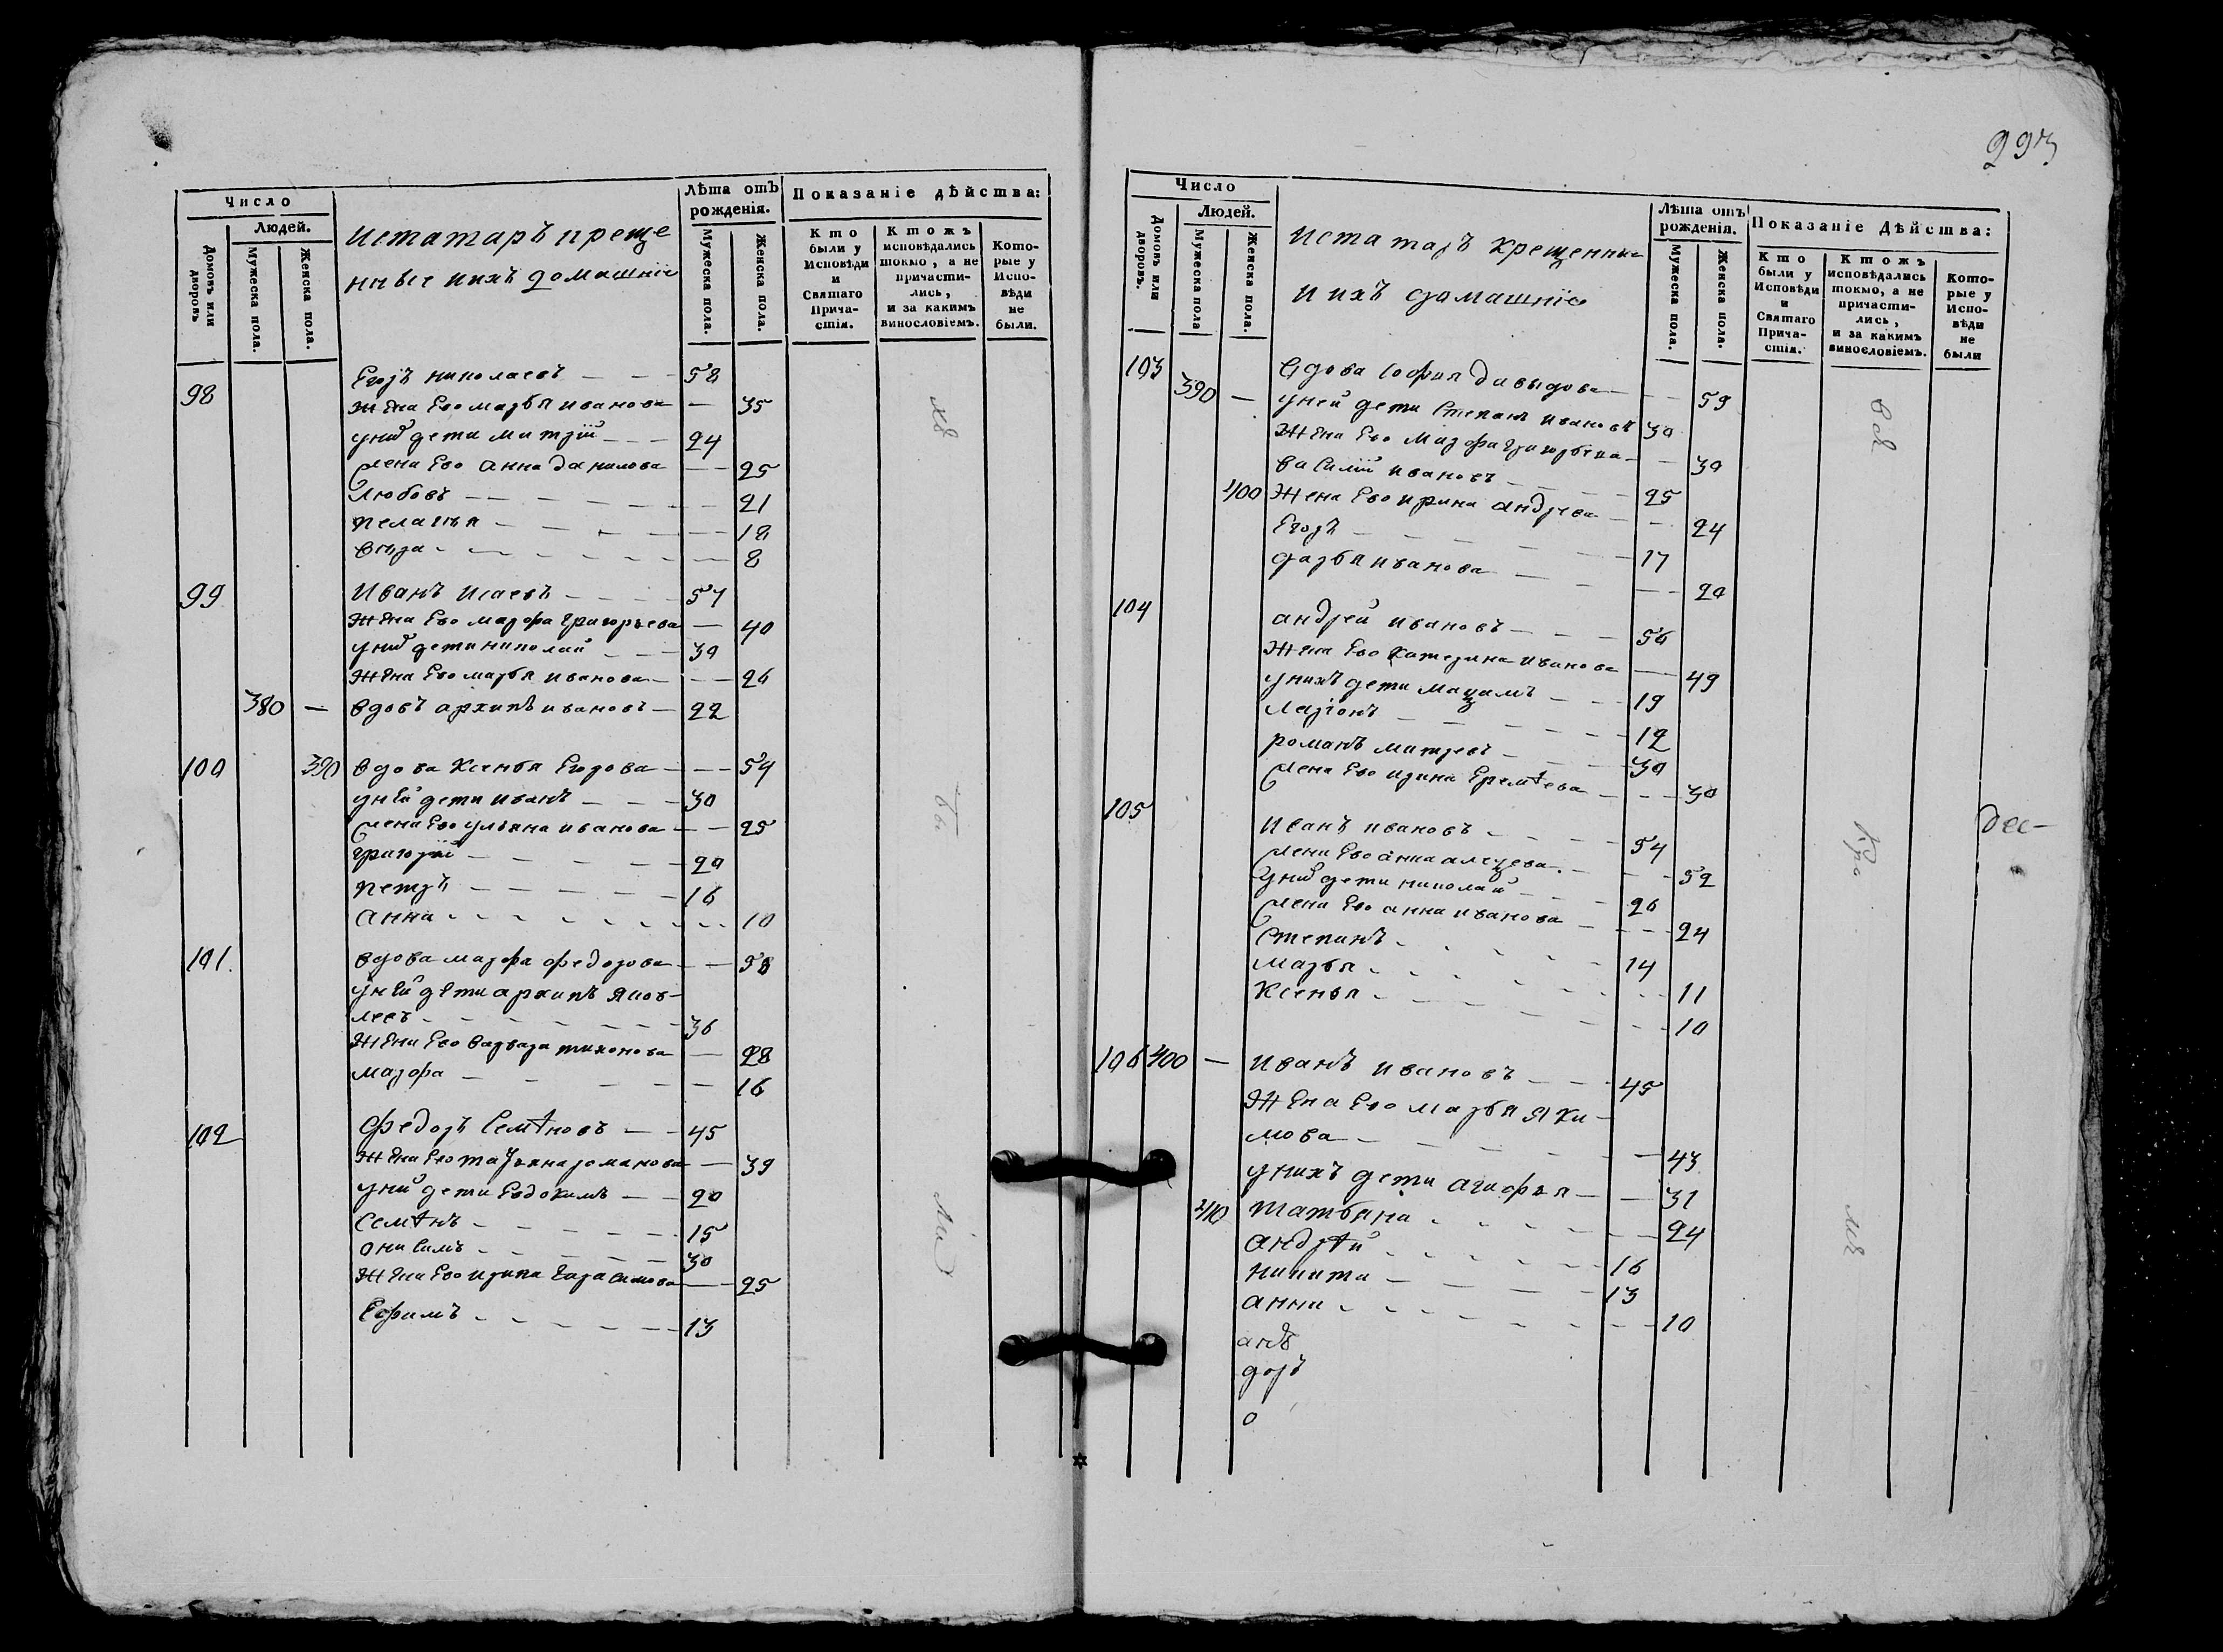 Число
Людей.
Домовъ или дворовъ
Мужеска пола.
Женска пола.
истатаръ креще
нные иихъ домашніе
Лѣта отъ рожденія.
Мужеска пола.
Женска пола.
Показаніе дѣйства:
Кто были у Исповѣди и Святаго Прича-стія.
Ктожъ исповѣдались токмо, а не причасти-лись, и за какимъ винословіемъ.
Кото-рые у Испо-вѣди не были.
98 Егоръ николаевъ 58
Жена Его марья иванова 35
уних дети митрій 24
Жена Его анна данилова 25
Любовь 21
пелагья 18
вера 8
99 Иванъ Исаевъ 57
Жена Его марфа григорьева 40
уних дети николай 30
Жена Его марья иванова 26
380 — вдовъ архипъ ивановъ 22
100 390 вдова Ксенья Егорова 54
уней дети иванъ 30
Жена Его ульяна иванова 25
григорій 20
петръ 16
анна 10
101. вдова марфа федорова 58
уней дети архипъ яков-
левъ 36
Жена Его варвара тихонова 28
марфа 16
102 федоръ Семѣновъ 45
Жена Его татьяна романова 39
уних дети Евдокимъ 20
Семѣнъ 15
онисимъ 30
Жена Его ирина Гарасимова 25
Ефимъ 13
Бы
ли
Число
Людей.
Домовъ или дворовъ.
Мужеска пола
Женска пола.
истатаръ крещенные
и ихъ домашніе
Лѣта отъ рожденія.
Мужеска пола.
Женска пола.
Показаніе дѣйства:
Кто были у Исповѣди и Святаго Прича-стія.
Ктожъ исповѣдались токмо, а не причасти-лись, и за какимъ винословіемъ.
Кото-рые у Испо-вѣди не были
103 вдова софия давыдова 59
390 — уней дети Степанъ ивановъ 30
Жена Его Марфа григорьева 30
василій ивановъ 25
400 Жена Его ирина андреева 24
Егоръ 17
дарья иванова 20
104 андрей ивановъ 56
Жена Его катерина иванова 49
унихъ дети 19
Ларіонъ 12
романъ митревъ 30
Жена Его ирина Еремѣева 30
105 Иванъ ивановъ 54
Жена Его анна 52
уних дети николай 26
Жена Его анна иванова 24
Степанъ 14
марья 11
Ксенья 10
106 400 — иванъ ивановъ 45
Жена Его марья яки-
мова 43
унихъ дети агафья 31
410 татьяна 24
андрѣй 16
никита 13
анна 10
дос-